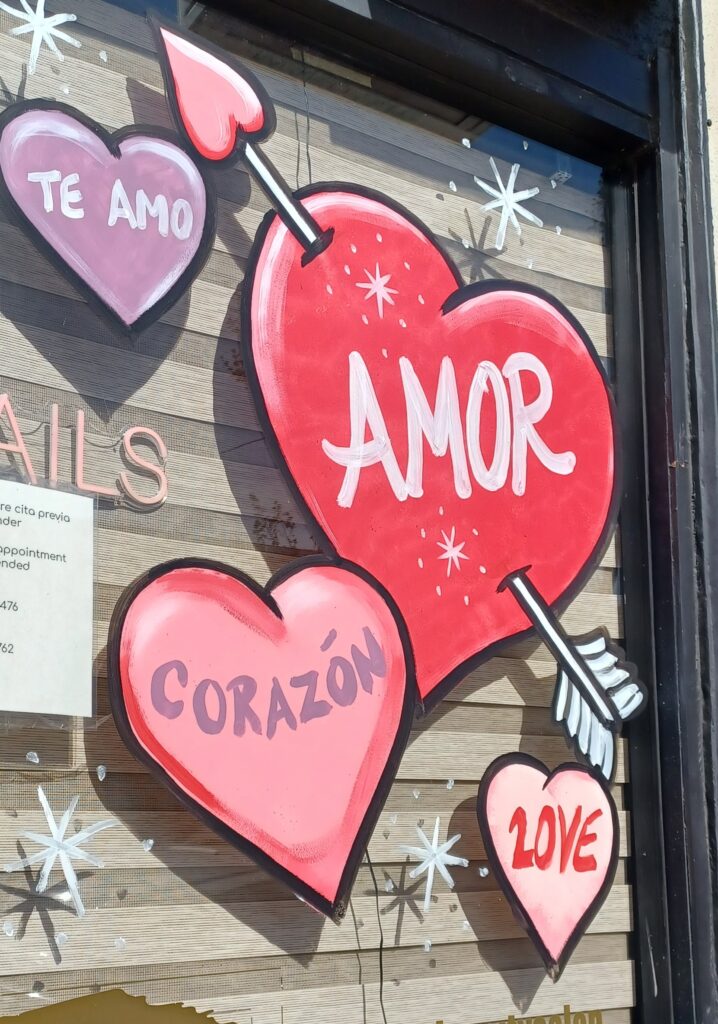 TE AMO
AMOR
AILS
re cita previa
nder
appointment
ended
476
762
CORAZÓN
LOVE